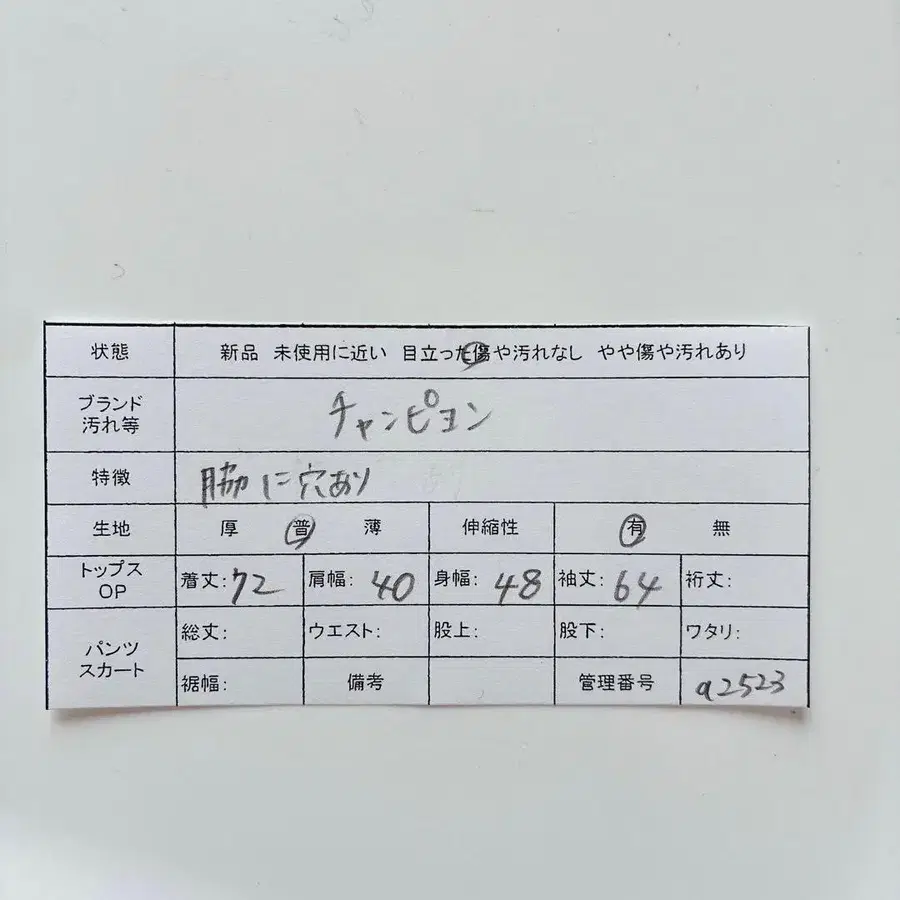 状態 新品 未使用に近い 目立った傷や汚れなし やや傷や汚れあり
ブランド
汚れ等
チャンピヨン
特徴 脇に穴あり
生地 厚 普 薄 伸縮性 有 無
トップス
OP
着丈:72 肩幅:40 身幅:48 袖丈:64 裄丈:
パンツ
スカート
総丈: ウエスト: 股上: 股下: ワタリ:
裾幅: 備考 管理番号 a2523